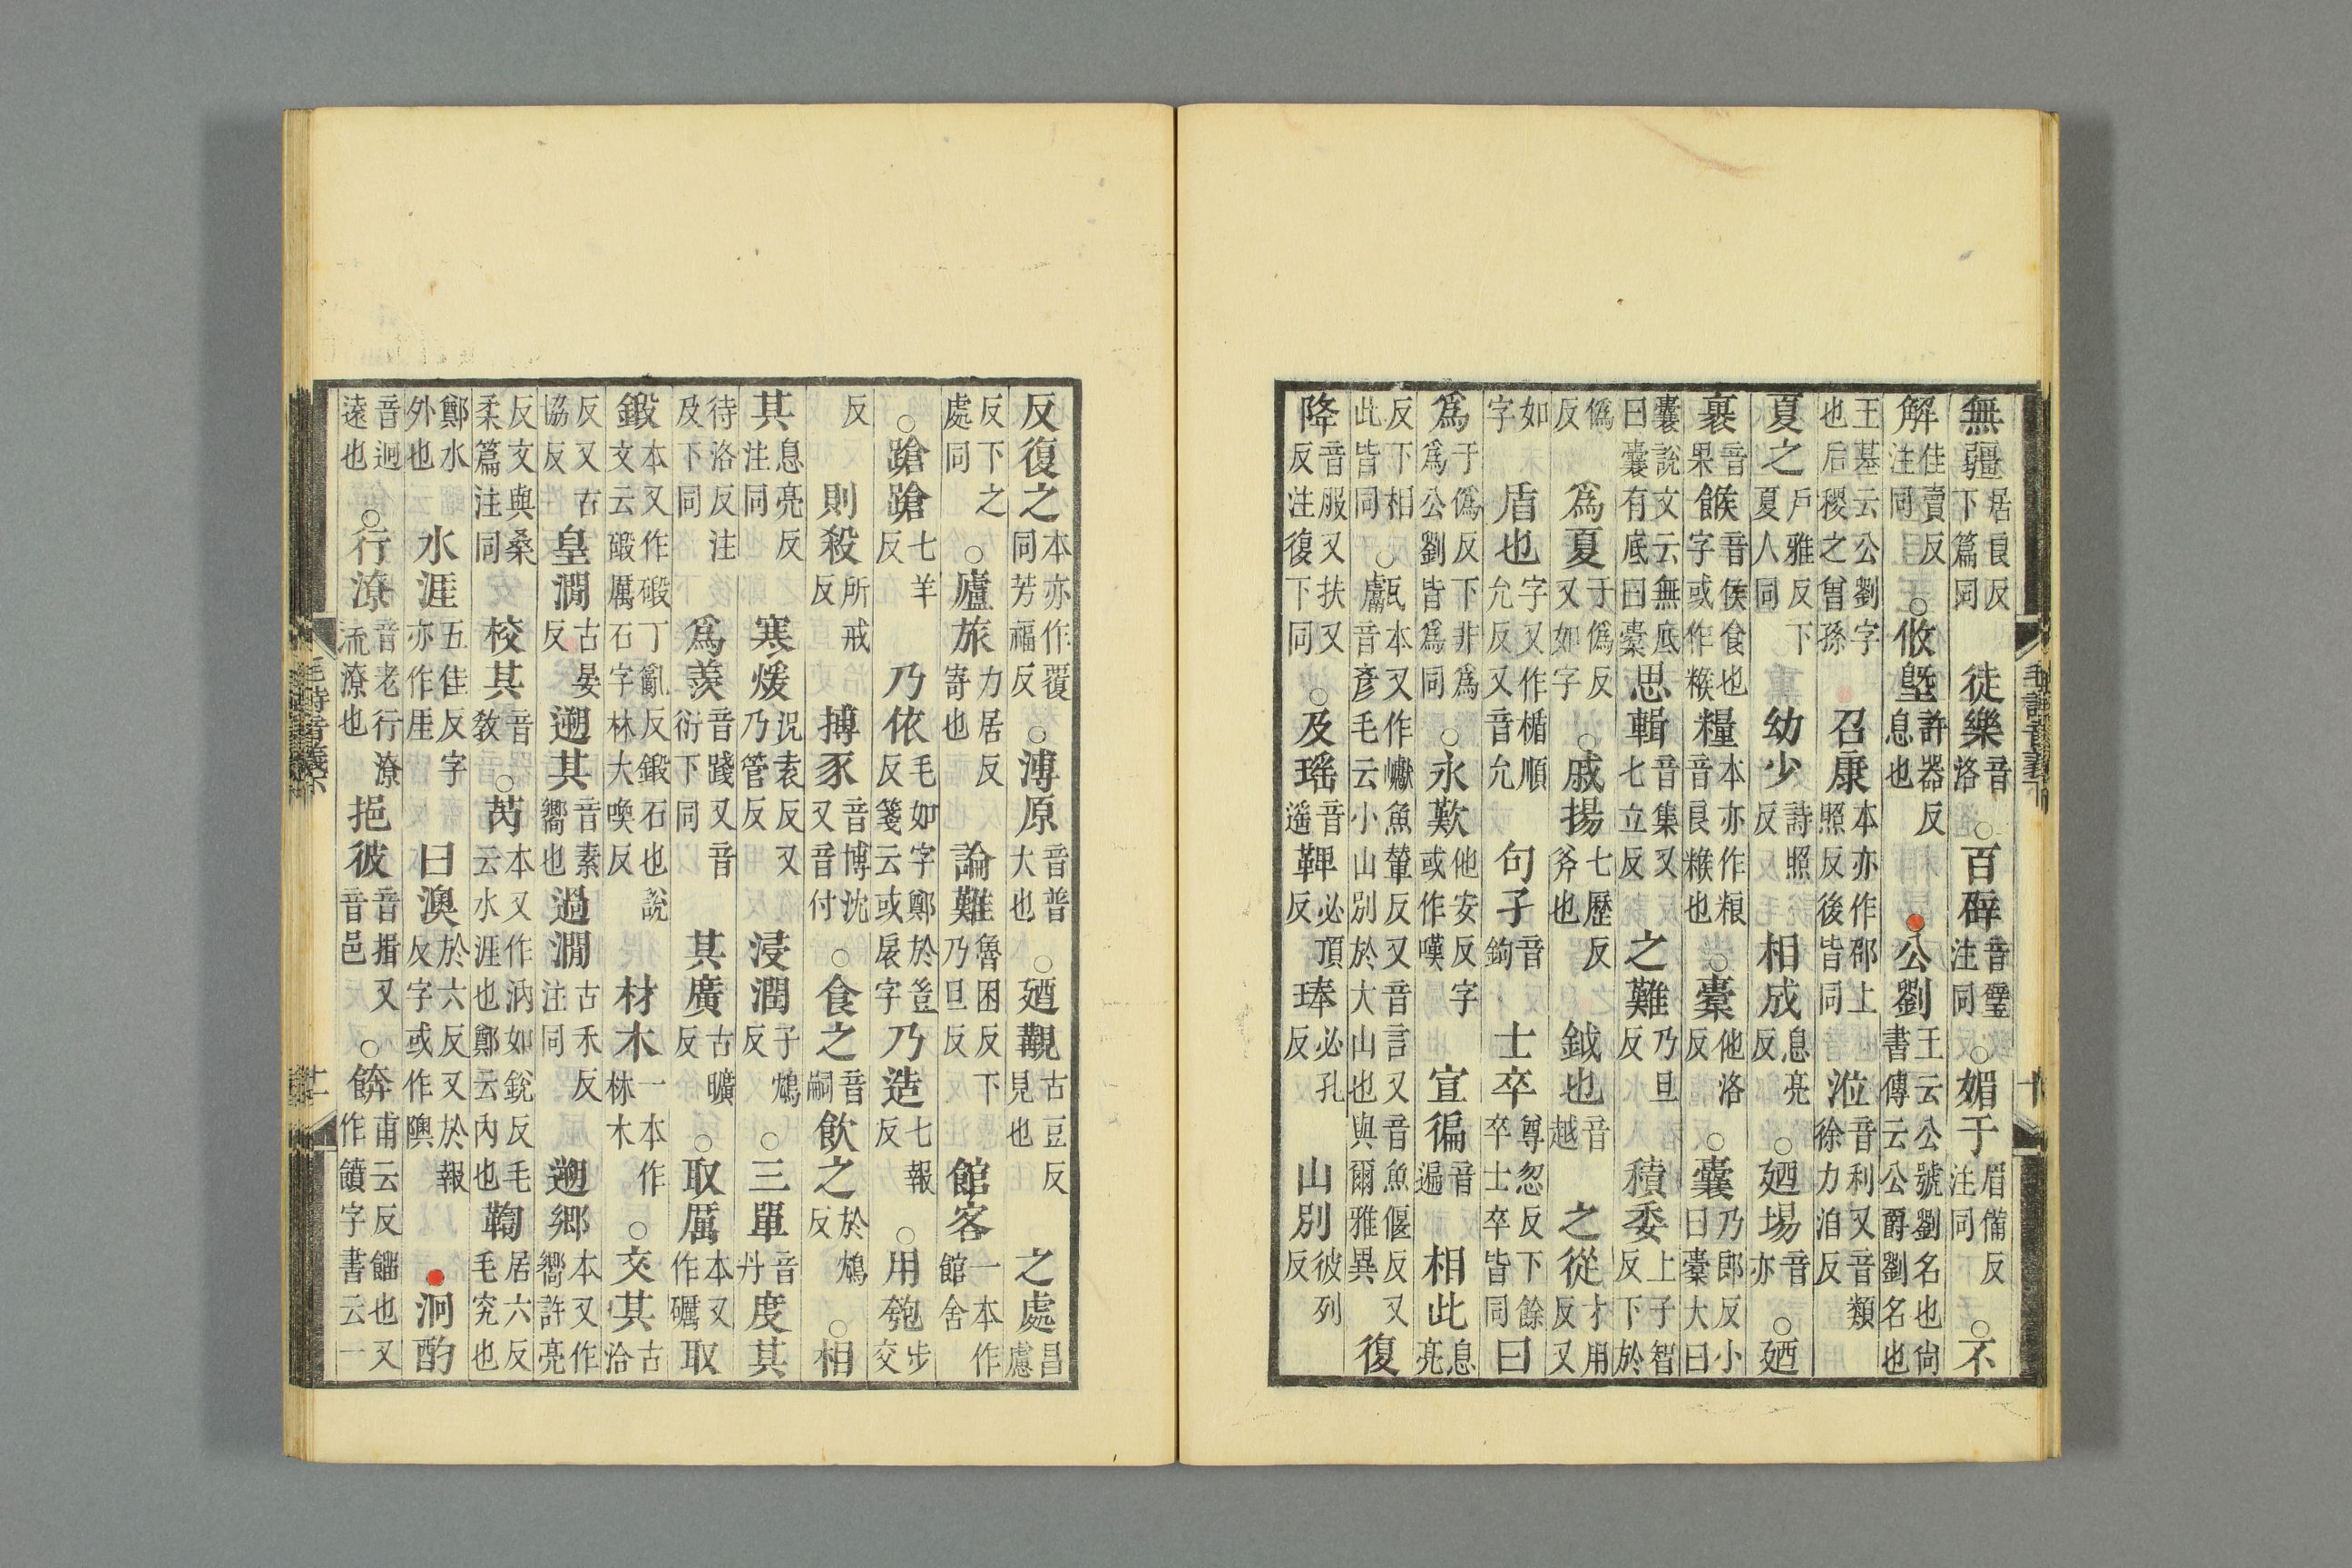 無疆居良反下篇同徒樂音洛○百辟音璧注同○媚于眉備反注同○不
解佳賣反注同○攸墍許器反息也公劉王云公號劉名也尙書傳云公爵劉名也
王基云公劉字也后稷之曾孫召康本亦作邵上照反後皆同涖音利又音類徐力洎反
夏之戶雅反下夏人同幼少詩照反相成息亮反○迺埸音亦○迺
裹音果餱音侯食也字或作糇糧本亦作粮音良糇也○橐他洛反○囊乃郎反小曰橐大曰
囊說文云無底曰囊有底曰橐思輯音集又七立反之難乃旦反積委上子智反下於
僞反爲夏于僞反又如字○戚揚七歷反斧也鉞也音越之從才用反又
如字盾也字又作楯順允反又音允句孑音鉤士卒尊忽反下餘卒士卒皆同曰
爲于僞反下非爲爲公劉皆爲同○永歎他安反字或作嘆宣徧音遍相此息亮
反下相此皆同○巘本又作𪩘魚輦反又音言又音魚偃反又音彥毛云小山別於大山也與爾雅異復
降音服又扶又反注復下同○及瑤音遙鞞必頂反琫必孔反山別彼列反
反復之本亦作覆同芳福反○溥原音普大也○迺覯古豆反見也之處昌慮
反下之處同○廬旅力居反寄也論難魯困反下乃旦反館客一本作館舍
○蹌蹌七羊反乃依毛如字鄭於豈反箋云或扆字乃造七報反○用匏步交
反則殺所戒反搏豕音博沈又音付○食之音嗣飲之於鴆反○相
其息亮反注同寒煖況袁反又乃管反浸潤子鴆反○三單音丹度其
待洛反注及下同爲羨音踐又音衍下同其廣古曠反○取厲本又作礪取
鍛本又作碫丁亂反鍛石也說文云碫厲石字林大喚反材木一本作林木○交其古洽
反又古協反皇澗古晏反遡其音素嚮也過澗古禾反注同遡鄉本又作嚮許亮
反文與桑柔篇注同校其音敎○芮本又作汭如銳反毛云水涯也鄭云內也鞫居六反毛究也
鄭水外也水涯五佳反字亦作厓曰澳於六反又於報反字或作隩泂酌
音迥遠也○行潦音老行潦流潦也挹彼音揖又音邑○餴甫云反餾也又作饙字書云一